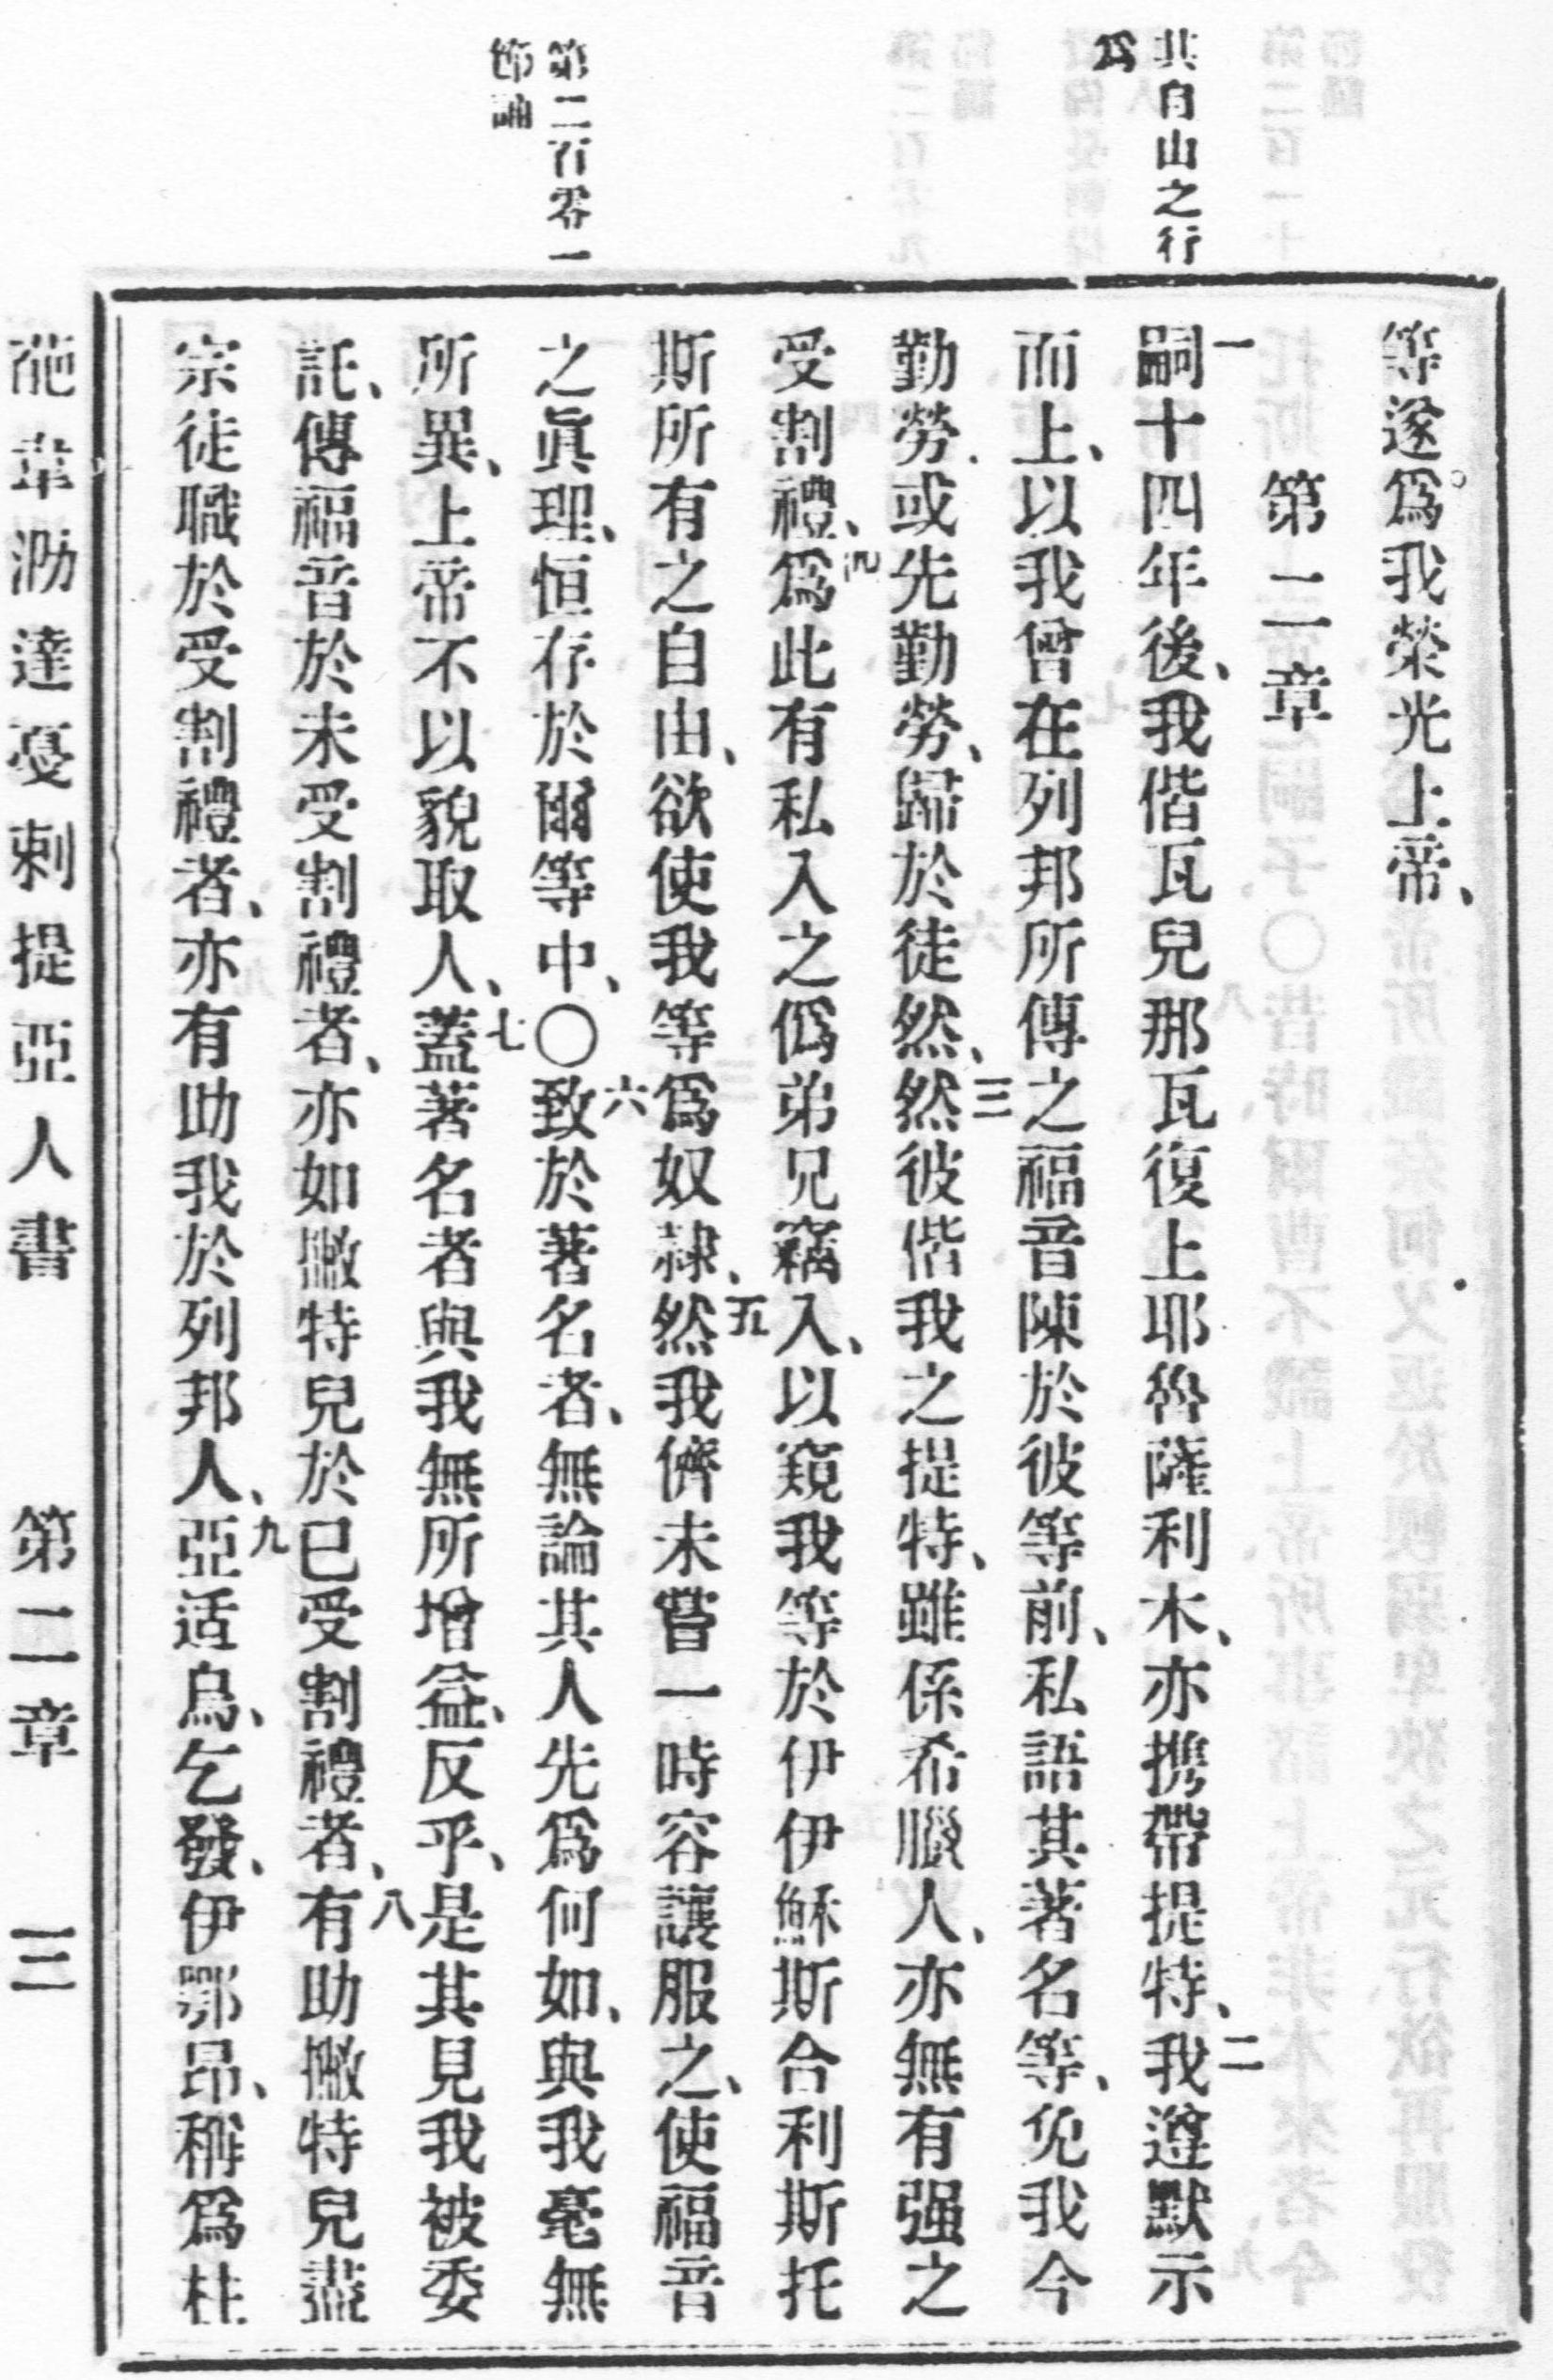 其自由之行
為
第二百零一
節誦
等遂爲我榮光上帝、
第二章
一嗣十四年後、我偕瓦兒那瓦復上耶魯薩利木、亦携帶提特、二我遵默示
而上、以我曾在列邦所傳之福音陳於彼等前、私語其著名等、免我今
勤勞、或先勤勞、歸於徒然、三然彼偕我之提特、雖係希臘人、亦無有强之
受割禮、四爲此有私入之僞弟兄竊入、以窺我等於伊伊穌斯合利斯托
斯所有之自由、欲使我等爲奴隸、五然我儕未嘗一時容讓服之、使福音
之眞理、恒存於爾等中、〇六致於著名者、無論其人先爲何如、與我毫無
所異、上帝不以貌取人、七蓋著名者與我無所增益、反乎、是其見我被委
託、傳福音於未受割禮者、亦如撇特兒於已受割禮者、八有助撇特兒盡
宗徒職於受割禮者、亦有助我於列邦人、九亞适烏、乞發、伊鄂昂、稱爲柱
達戞剌提亞人書 第二章 三